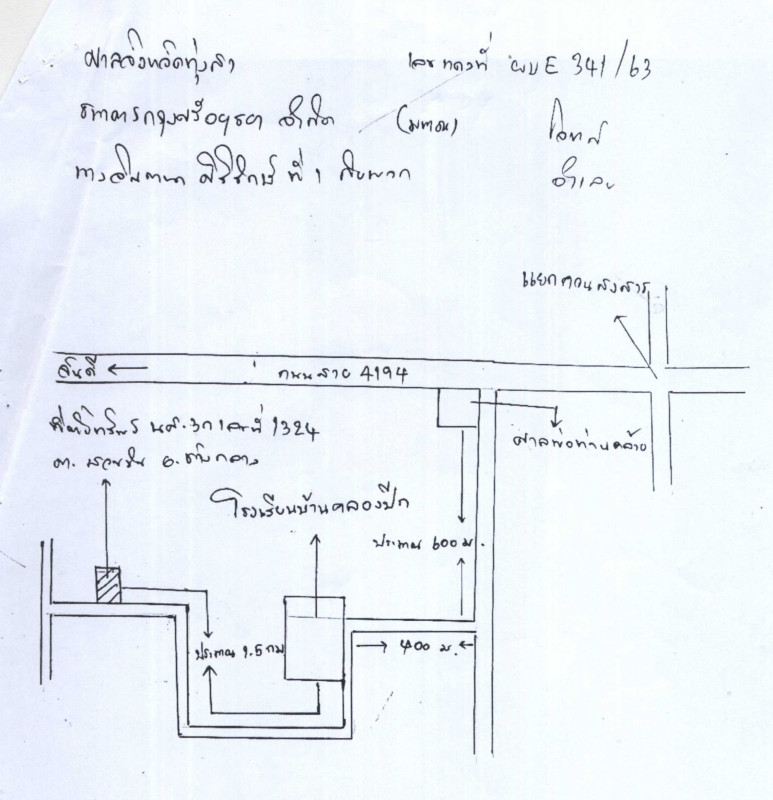 ศาลจังหวัดทุ่งสง เลขคดีที่ ผบE 341/63
ธนาคารกรุงศรีอยุธยา จำกัด (มหาชน) โจทก์
ที่ 1 กับพวก จำเลย
แยกควนสงสาร
จันดี ← ถนนสาย 4194
ที่ตั้งทรัพย์ นส.3ก เลขที่ 1324
ศาลพ่อท่านคล้าย
ต. อ.
โรงเรียนบ้านคลองปีก
ประมาณ 600 ม.
ประมาณ 1.5 กม
→ 400 ม. ←